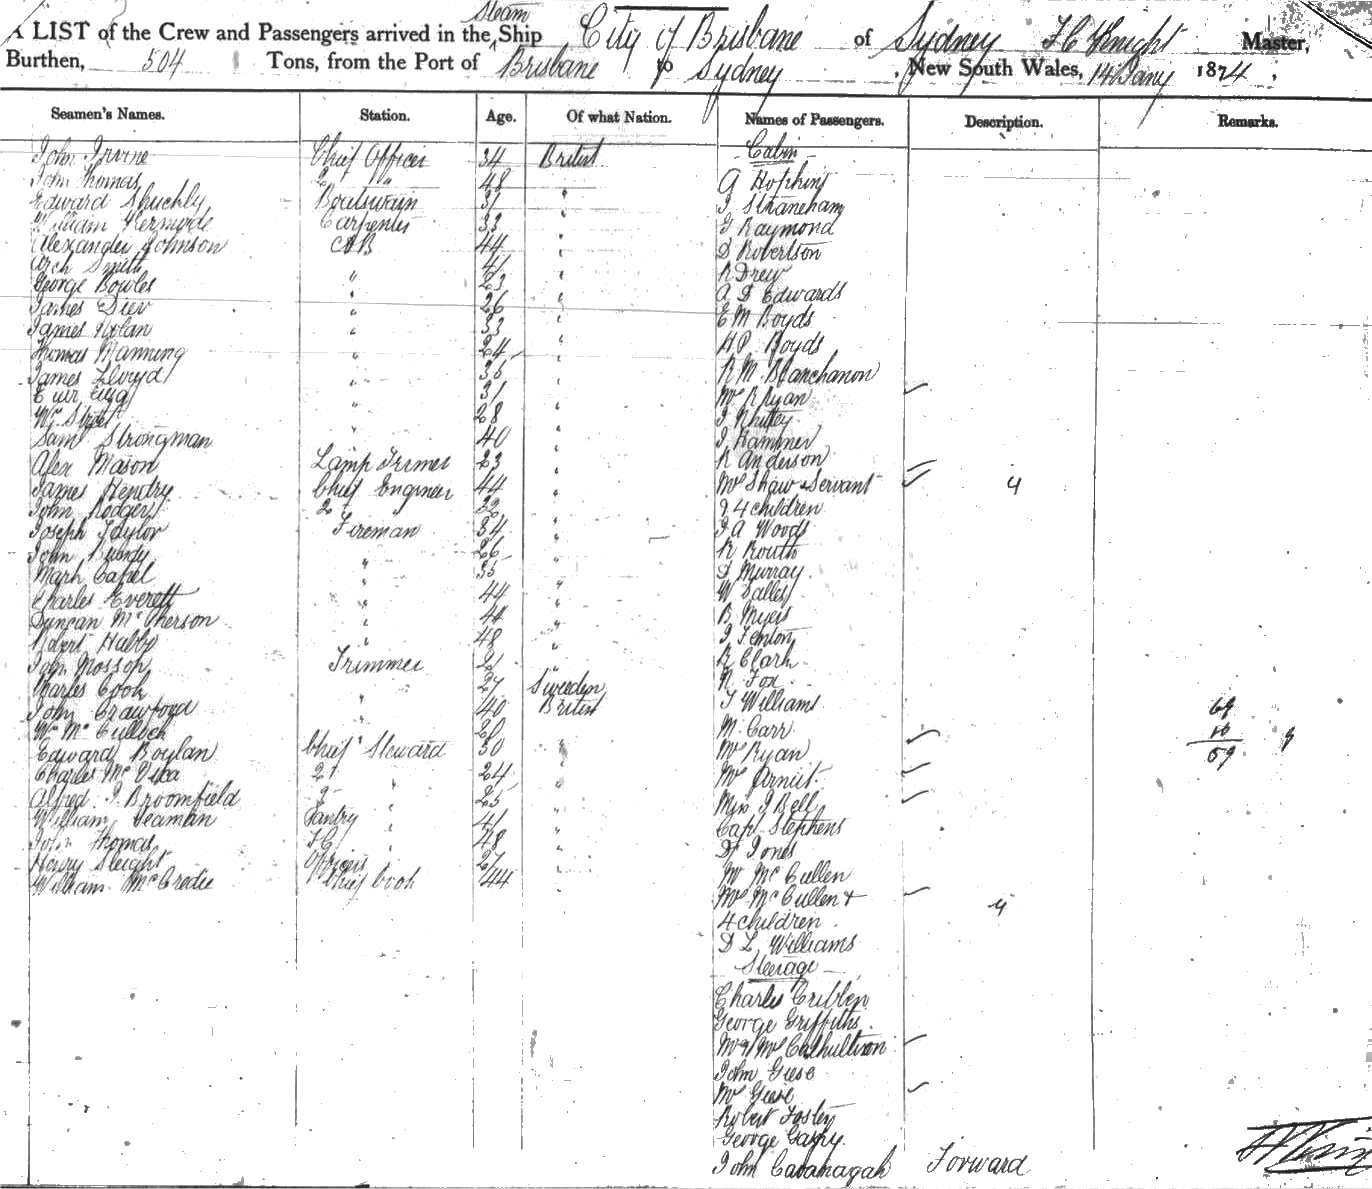 A LIST of the Crew and Passengers arrived in the Steam Ship City of Brisbane of Sydney F C Knight Master,
Burthen, 504 Tons, from the Port of Brisbane to Sydney, New South Wales, 14 Jany 1874,
Seamen's Names. Station. Age. Of what Nation. Names of Passengers. Description. Remarks.
John Irvine Chief Officer 34 British Cabin
John Thomas 2 " 48 " A Hopkins
Edward Shuckly Boatswain 31 " J Straneham
William Kermode Carpenter 33 " G Raymond
Alexander Johnson AB 44 " D Robertson
Arch Smith 41 " R Drew
George Bowles " 23 " A D Edwards
James " 26 " E M Boyds
James Nolan " 33 " H P Boyds
Thomas Manning " 24 " R M Blanchanon
James Lloyd " 35 " Mrs Ryan
31 " J Whitty
Wm 28 " J Hammer
Saml Strongman " 40 " R Anderson
Alex Mason Lamp Trimer 23 " Mrs Shaw & Servant 4
James Hendry Chief Engineer 44 " & 4 children
John Rodgers 2 " 32 J A Woods
Joseph Taylor Fireman 34 " R Routh
John 26 " J Murray
Mark Capel " 35 " W
Charles Everett " 44 " B Myers
Duncan McPherson " 44 " J Fenton
Robert Hably " 48 " R Clark
John Mossop Trimmer 21 " R Fox
Charles Cook " 27 Sweeden J Williams
John Crawford " 40 British M Carr 69
Wm McCulloch " 20 Mrs Ryan 10
Edward Boylan Chief Steward 30 " Mrs 59 9
Charles Mc 2d 24 " Miss J Bell
Alfred J Broomfield " 25 " Capt Stephens
William Seaman Pantry 41 " Dr Jones
John Thomas FC 48 " Mr McCullen
Henry Sleight Officers 27 " Mrs McCullen & 4
William McCredie Chief Cook 44 " 4 children
D L Williams
Steerage
Charles Cribben
George Griffiths
Mr & Mrs
John Giese
Mrs Giese
Robert Foster
George
John Cavanagah Forward